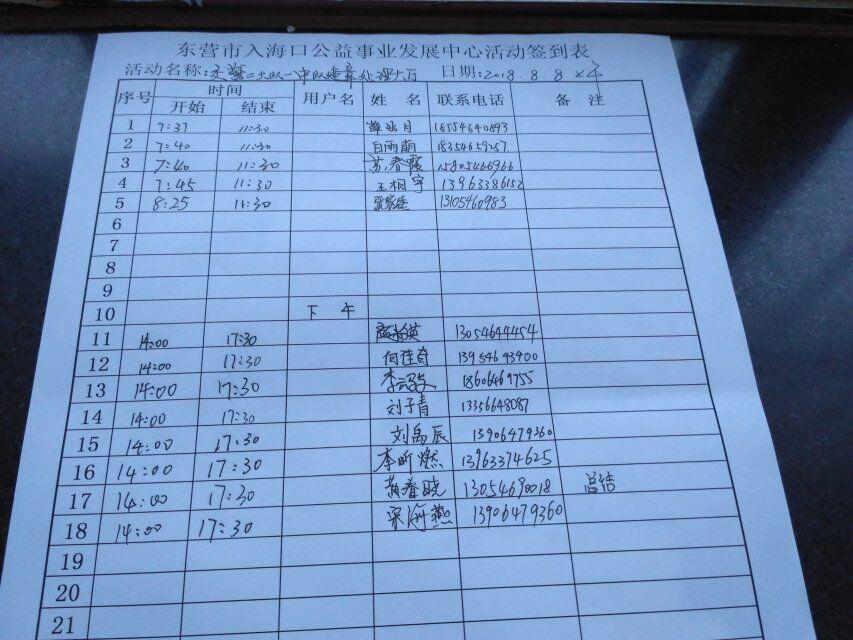 东营市入海口公益事业发展中心活动签到表
活动名称: 二大队一中队 日期: 2018.8.8
序号 时间 用户名 姓名 联系电话 备注
开始 结束
1 7:37 11:30 月 18554640893
2 7:40 11:30 白雨萌 18354659257
3 7:40 11:30 苏春霞 15805466966
4 7:45 11:30 王相宇 13963386152
5 8:25 11:30 13105460983
6
7
8
9
10 下午
11 14:00 17:30 英 13054644454
12 14:00 17:30 何佳奇
13 14:00 17:30 李 18606469755
14 14:00 17:30 刘子青 13356648087
15 14:00 17:30 刘禹辰 13906479360
16 14:00 17:30 李昕燃 13963374625
17 14:00 17:30 黄春晓 13054690018 总结
18 14:00 17:30 宋海燕 13906479360
19
20
21